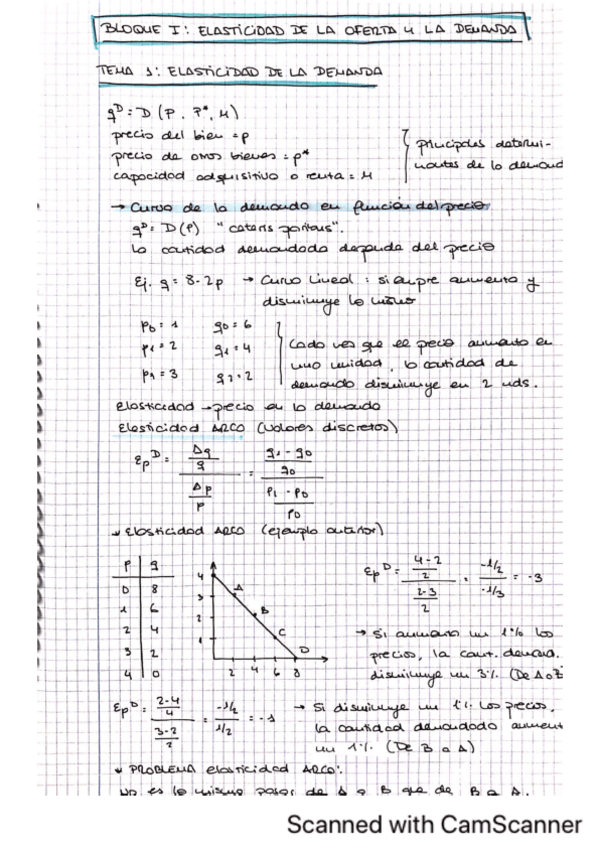 BLOQUE I: ELASTICIDAD DE LA OFERTA Y LA DEMANDA
TEMA 1: ELASTICIDAD DE LA DEMANDA
qᴰ = D (P, P*, M)
precio del bien = p
precio de otros bienes = p*
capacidad adquisitiva o renta = M
principales determi-
nantes de la demand
→ Curva de la demanda en función del precio
qᴰ = D(P) "ceteris paribus".
La cantidad demandada depende del precio
Ej. q = 8-2p → Curva Lineal: siempre aumenta y
disminuye lo mismo
P0 = 1 q0 = 6
P1 = 2 q1 = 4
P2 = 3 q2 = 2
Cada vez que el precio aumenta en
una unidad, la cantidad de
demanda disminuye en 2 uds.
Elasticidad - precio en la demanda
Elasticidad ARCO (valores discretos)
εpᴰ = (Δq/q) / (Δp/p) = ((q1-q0)/q0) / ((P1-P0)/P0)
Elasticidad ARCO (ejemplo anterior)
P q
0 8
1 6
2 4
3 2
4 0
4
3
2
1
A
B
C
D
2 4 6 8
εpᴰ = ((4-2)/2) / ((2-3)/2) = (-1/2) / (-1/3) = -3
→ Si aumenta un 1% los
precios, la cant. deman.
disminuye un 3%. (De A a B
εpᴰ = ((2-4)/4) / ((3-2)/2) = (-1/2) / (1/2) = -1
→ Si disminuye un 1% los precios,
la cantidad demandada aument
un 1%. (De B a A)
PROBLEMA elasticidad ARCO:
No es lo mismo pasar de A a B que de B a A.
Scanned with CamScanner